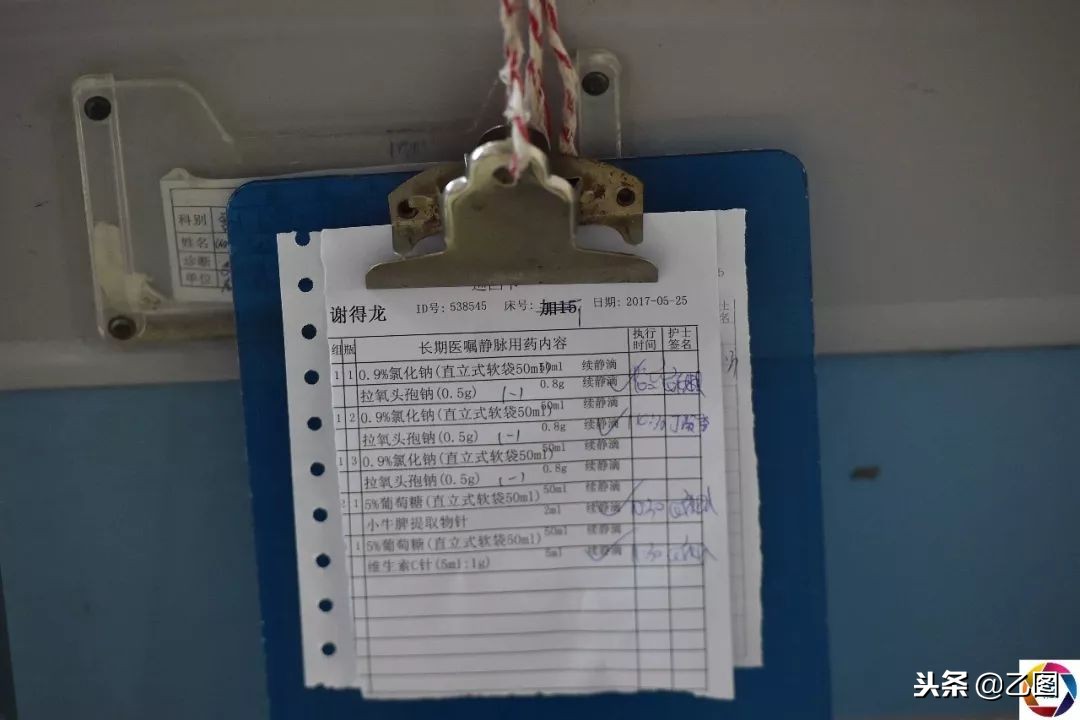 科别
姓名
诊断
单位
谢得龙 ID号: 538545 床号: 加15 日期: 2017-05-25
组 瓶 长期医嘱静脉用药内容 执行时间 护士签名
1 1 0.9%氯化钠(直立式软袋50ml) 50ml 续静滴
拉氧头孢钠(0.5g) (-) 0.8g 续静滴
1 2 0.9%氯化钠(直立式软袋50ml) 50ml 续静滴
拉氧头孢钠(0.5g) (-) 0.8g 续静滴 10:30
1 3 0.9%氯化钠(直立式软袋50ml) 50ml 续静滴
拉氧头孢钠(0.5g) (-) 0.8g 续静滴
2 1 5%葡萄糖(直立式软袋50ml) 50ml 续静滴
小牛脾提取物针 2ml 续静滴
1 5%葡萄糖(直立式软袋50ml) 50ml 续静滴
维生素C针(5ml:1g) 5ml 续静滴
头条 @乙图